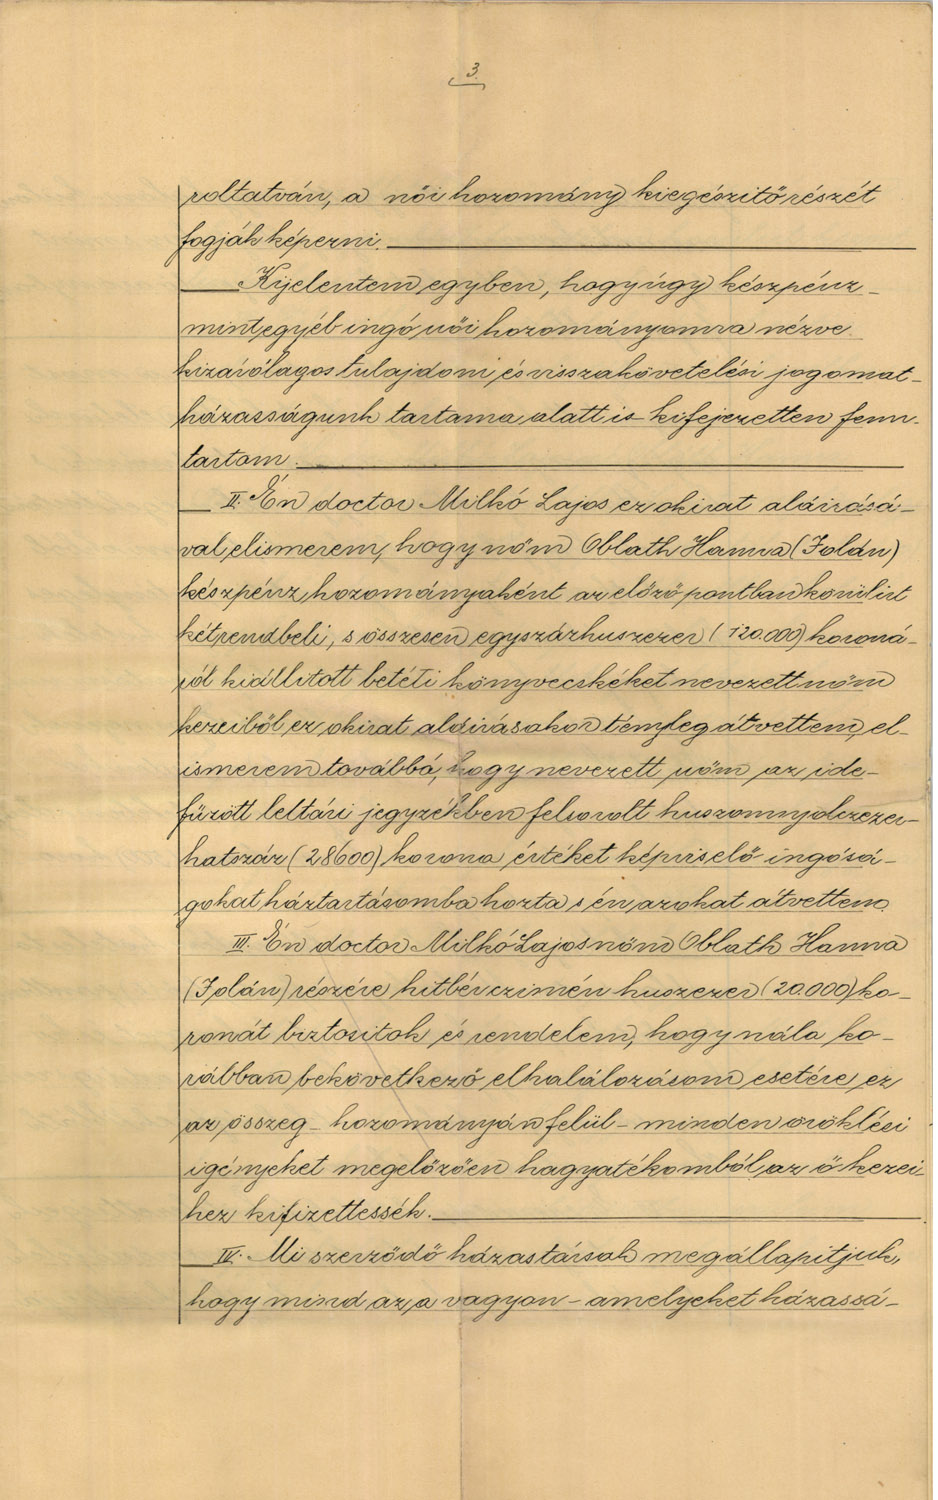 3.
roltatván, a női hozomány kiegészitő részét
fogják képezni.
Kijelentem egyben, hogy úgy készpénz
mint egyéb ingó női hozományomra nézve
kizárólagos tulajdoni és visszakövetelési jogomat
házasságunk tartama alatt is kifejezetten fenn-
tartom.
II. Én doctor Milkó Lajos ez okirat aláirásá-
val elismerem, hogy nőm Oblath Hanna (Jolán)
készpénz hozományaként az előző pontban körülirt
kétrendbeli, s összesen egyszázhuszezer (120.000) koroná-
ról kiállitott betéti könyvecskéket nevezett nőm
kezeiből ez okirat aláirásakor tényleg átvettem, el-
ismerem továbbá, hogy nevezett nőm az ide-
fűzött leltári jegyzékben felsorolt huszonnyolczezer-
hatszáz (28600) korona értéket képviselő ingósá-
gokat háztartásomba hozta s én azokat átvettem.
III. Én doctor Milkó Lajos nőm Oblath Hanna
(Jolán) részére hitbér czimén huszezer (20.000) ko-
ronát biztositok és rendelem, hogy nála ko-
rábban bekövetkező elhalálozásom esetére ez
az összeg - hozományán felül - minden öröklési
igényeket megelőzően hagyatékomból az ő kezei-
hez kifizettessék.
IV. Mi szerződő házastársak megállapitjuk,
hogy mind az a vagyon - amelyeket házassá-